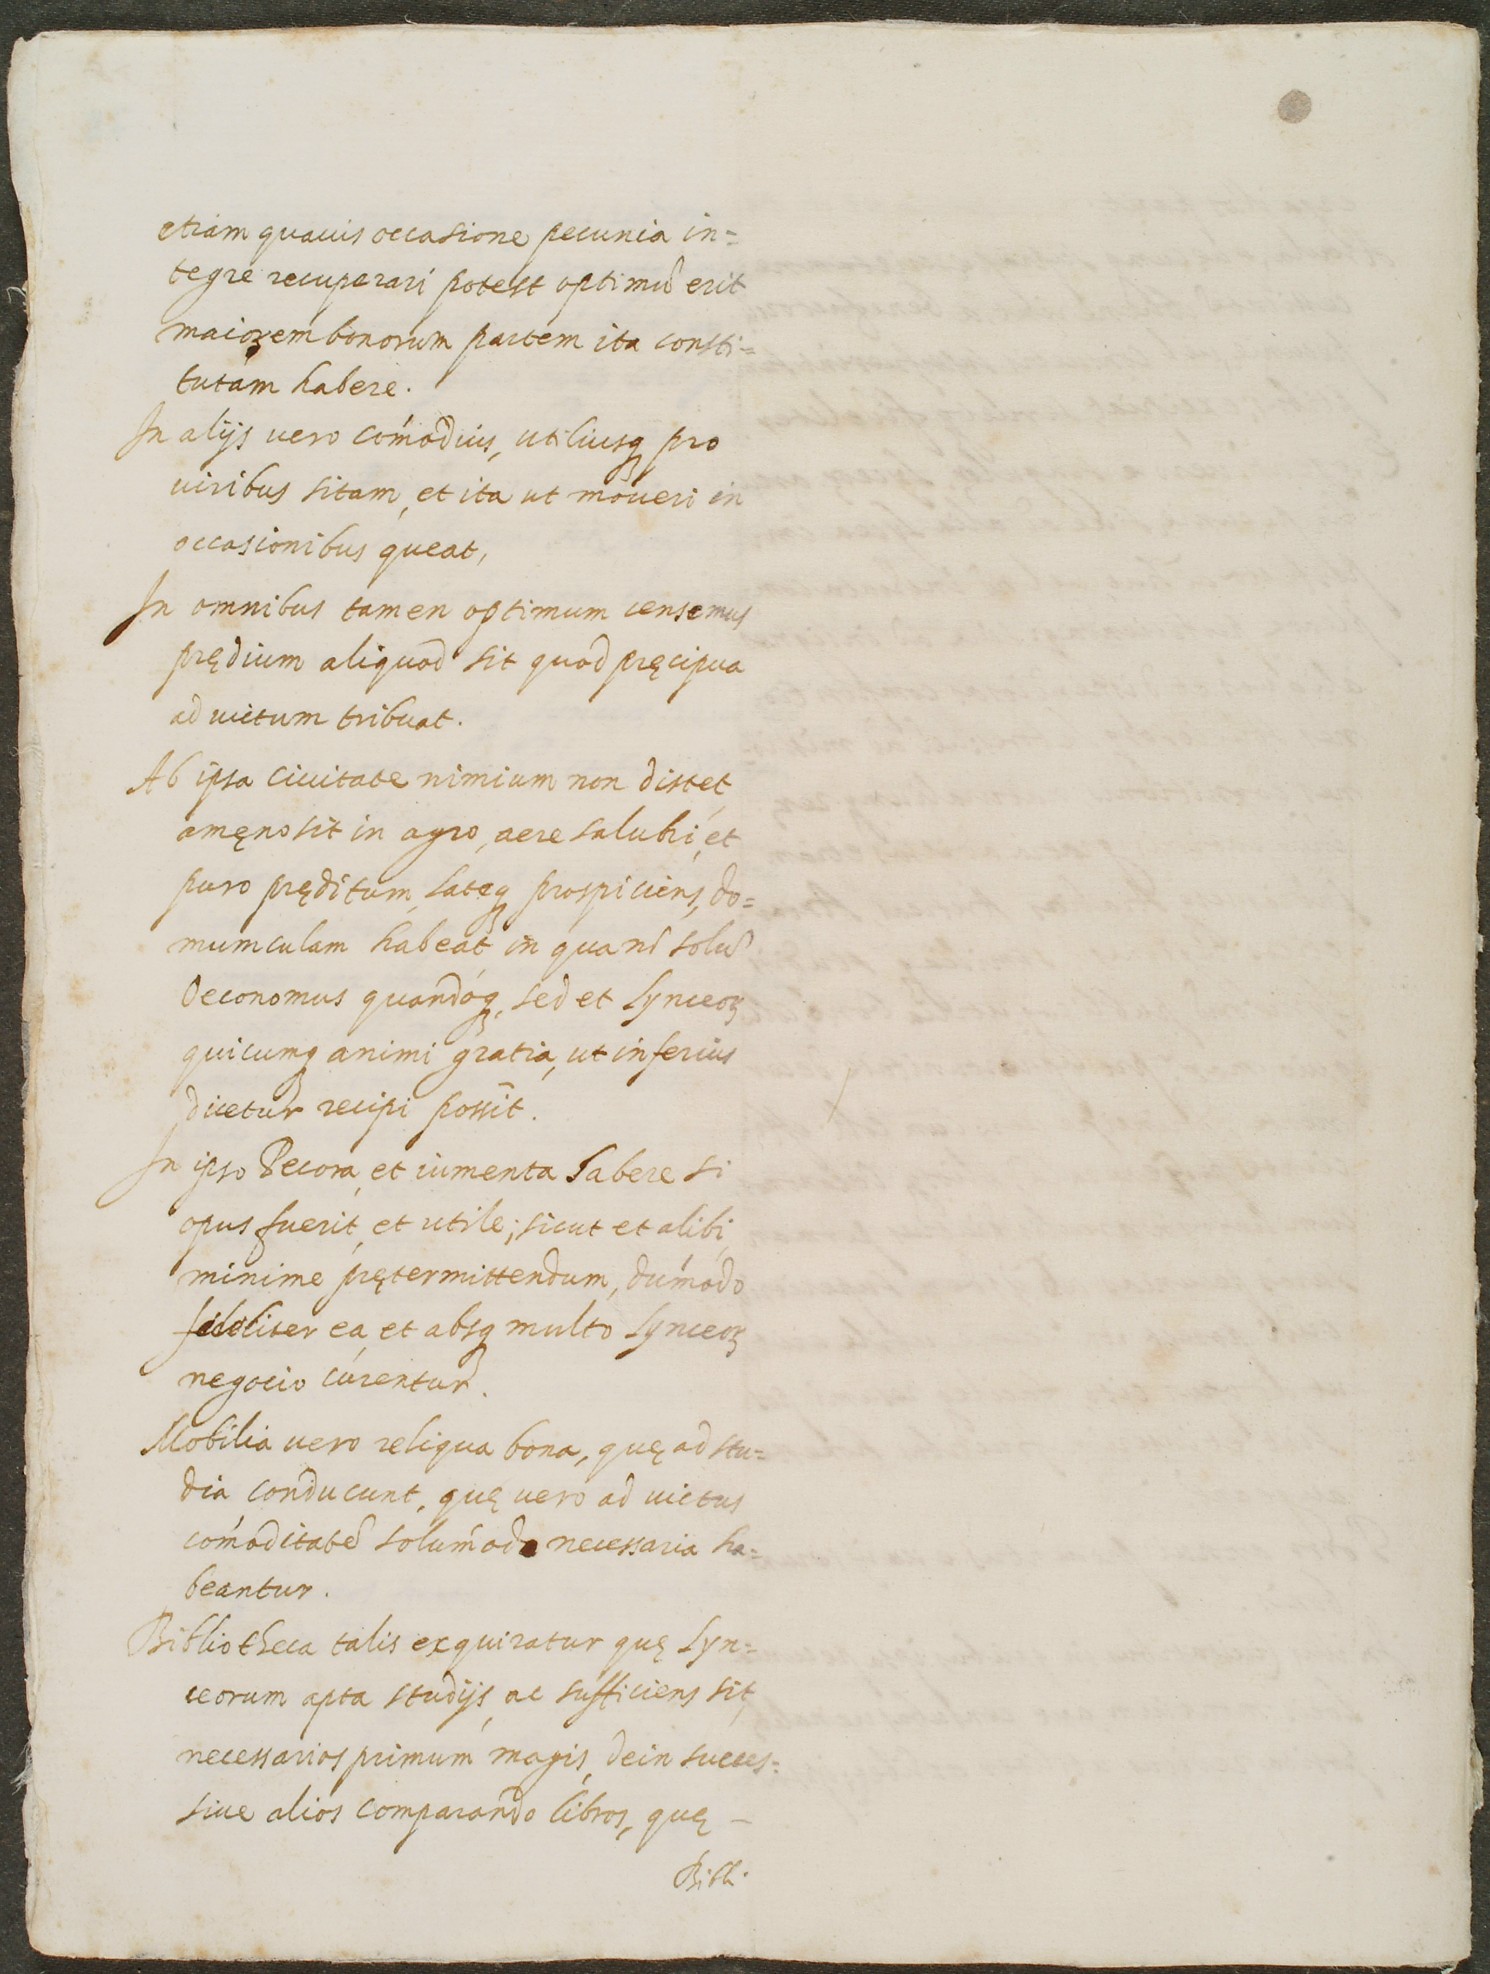 etiam quauis occasione pecunia in=
tegre recuperari potest optimũ erit
maiorem bonorum partem ita consti=
tutam habere.
In alijs uero com̃odius, utiliusq pro
uiribus sitam, et ita ut moueri in
occasionibus queat,
In omnibus tamen optimum censemus
prędium aliquod sit quod pręcipua
ad uictum tribuat.
Ab ipsa ciuitate nimium non distet,
amęno sit in agro, aere salubri, et
puro pręditum, lateq prospiciens, do=
mumculam habeat in qua nõ solũ
Oeconomus quandoq, sed et Lynceoꝝ
quicumq animi gratia, ut inferius
dicetur recipi possit.
In ipso Pecora, et iumenta habere si
opus fuerit, et utile; sicut et alibi,
minime prętermittendum, dum̃odo
fideliter ea, et absq multo Lynceoꝝ
negocio curentur.
Mobilia uero reliqua bona, quę ad stu=
dia conducunt, quę uero ad uictus
com̃oditatẽ solum̃odo necessaria ha=
beantur.
Bibliotheca talis exquiratur quę Lyn=
ceorum apta studijs, ac sufficiens sit,
necessarios primum magis, dein succes=
siue alios comparando libros, quę –
Bibl.